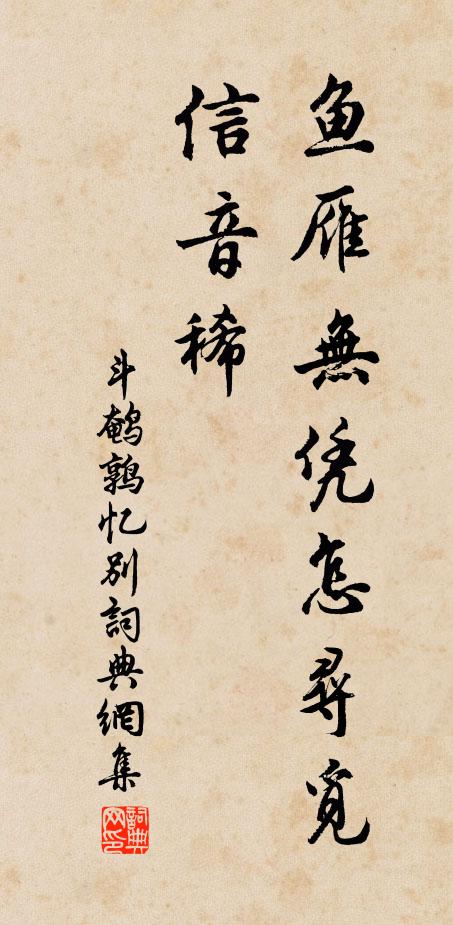 鱼雁無凭怎尋覓
信音稀
斗鹌鹑忆别詞典網集
詞典网印